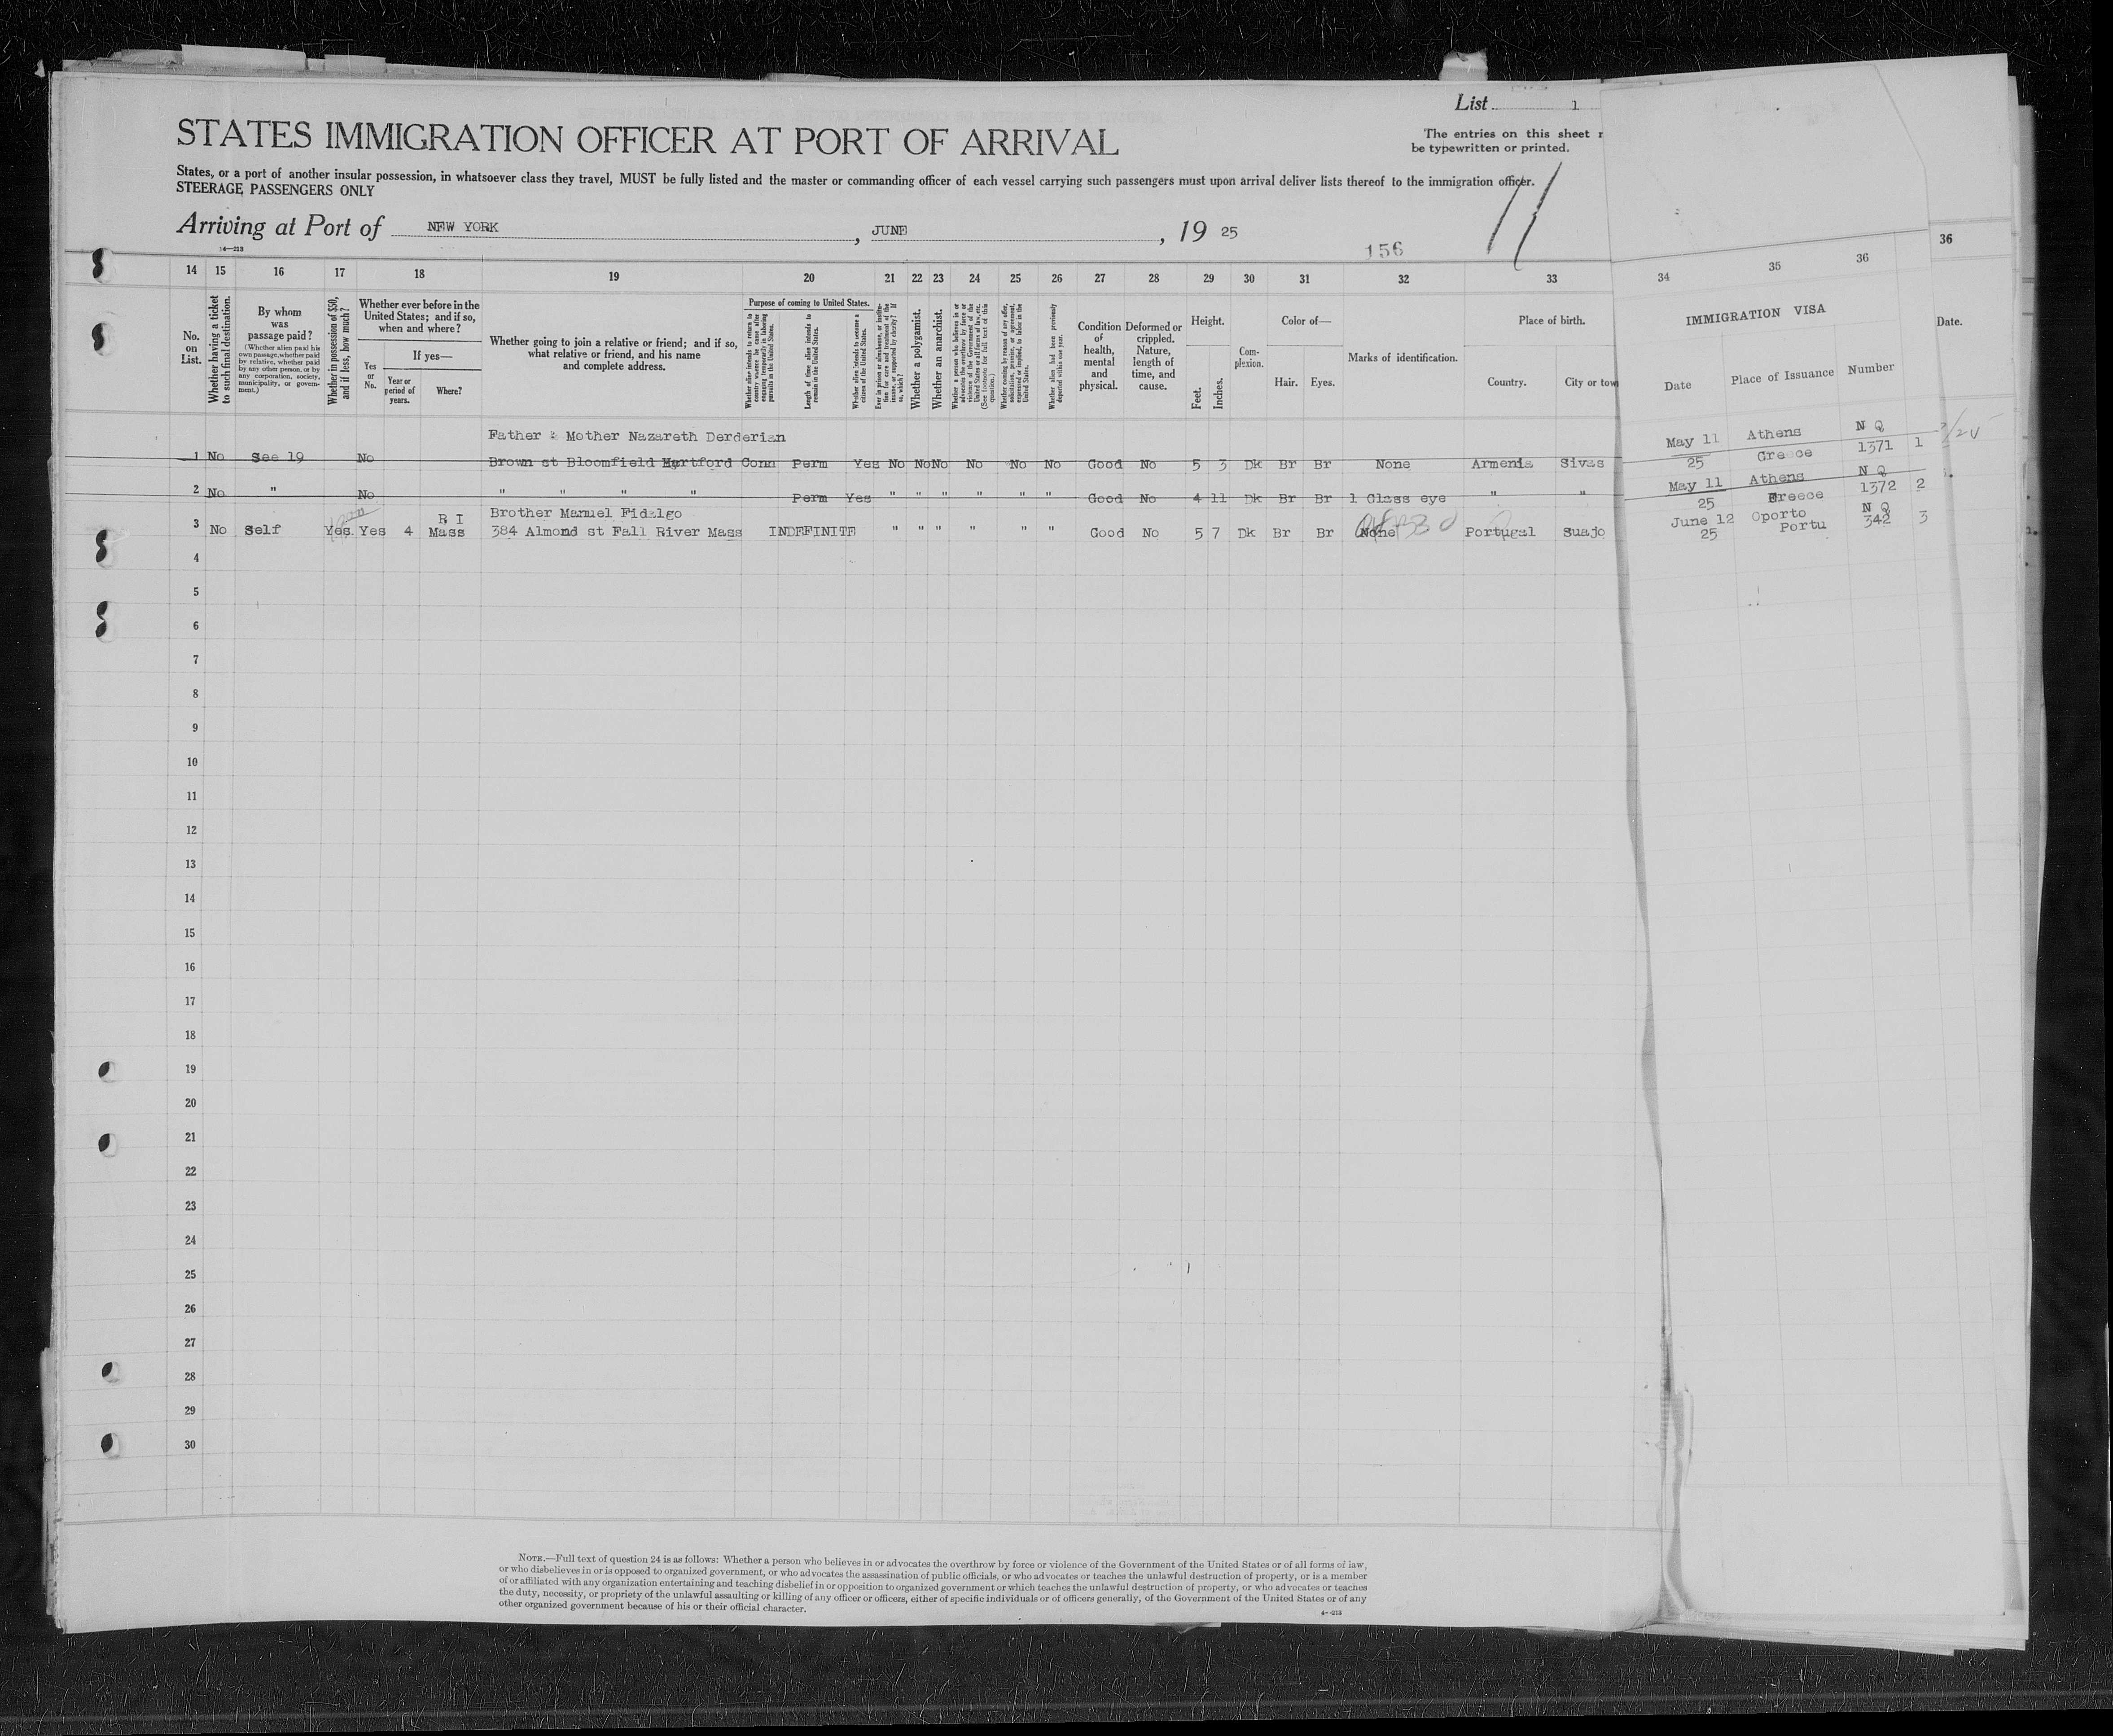 List 1
The entries on this sheet
be typewritten or printed.
STATES IMMIGRATION OFFICER AT PORT OF ARRIVAL
States, or a port of another insular possession, in whatsoever class they travel, MUST be fully listed and the master or commanding officer of each vessel carrying such passengers must upon arrival deliver lists thereof to the immigration officer.
STEERAGE PASSENGERS ONLY
Arriving at Port of NEW YORK, JUNE, 19 25
14—213
156
14 15 16 17 18 19 20 21 22 23 24 25 26 27 28 29 30 31 32 33 34 35 36 36
No. on List.
Whether having a ticket to such final destination.
By whom was passage paid?
(Whether alien paid his own passage, whether paid by relative, whether paid by any other person, or by any corporation, society, municipality, or government.)
Whether in possession of $50, and if less, how much?
Whether ever before in the United States; and if so, when and where?
Yes or No.
If yes—
Year or period of years.
Where?
Whether going to join a relative or friend; and if so, what relative or friend, and his name and complete address.
Purpose of coming to United States.
Whether alien intends to return to country whence he came after engaging temporarily in laboring pursuits in the United States.
Length of time alien intends to remain in the United States.
Whether alien intends to become a citizen of the United States.
Ever in prison or almshouse, or institution for care and treatment of the insane, or supported by charity? If so, which?
Whether a polygamist.
Whether an anarchist.
Whether a person who believes in or advocates the overthrow by force or violence of the Government of the United States or all forms of law, etc. (See footnote for full text of this question.)
Whether coming by reason of any offer, solicitation, promise, or agreement, expressed or implied, to labor in the United States.
Whether alien had been previously deported within one year.
Condition of health, mental and physical.
Deformed or crippled. Nature, length of time, and cause.
Height.
Feet.
Inches.
Complexion.
Color of—
Hair.
Eyes.
Marks of identification.
Place of birth.
Country.
City or tow
IMMIGRATION VISA
Date
Place of Issuance
Number
Date.
Father & Mother Nazareth Derderian
1 No See 19 No Brown st Bloomfield Hartford Conn Perm Yes No No No No No No Good No 5 3 Dk Br Br None Armenia Sivas May 11 25 Athens Greece N Q 1371 1
2 No " No " " " " Perm Yes " " " " " " Good No 4 11 Dk Br Br 1 Glass eye " " May 11 25 Athens Greece N Q 1372 2
Brother Manuel Fidalgo
3 No Self Yes Yes 4 R I Mass 384 Almond st Fall River Mass INDEFINITE " " " " " " Good No 5 7 Dk Br Br None Portugal Suajo June 12 25 Oporto Portu N Q 342 3
4
5
6
7
8
9
10
11
12
13
14
15
16
17
18
19
20
21
22
23
24
25
26
27
28
29
30
NOTE.—Full text of question 24 is as follows: Whether a person who believes in or advocates the overthrow by force or violence of the Government of the United States or of all forms of law,
or who disbelieves in or is opposed to organized government, or who advocates the assassination of public officials, or who advocates or teaches the unlawful destruction of property, or is a member
of or affiliated with any organization entertaining and teaching disbelief in or opposition to organized government or which teaches the unlawful destruction of property, or who advocates or teaches
the duty, necessity, or propriety of the unlawful assaulting or killing of any officer or officers, either of specific individuals or of officers generally, of the Government of the United States or of any
other organized government because of his or their official character.
4—213